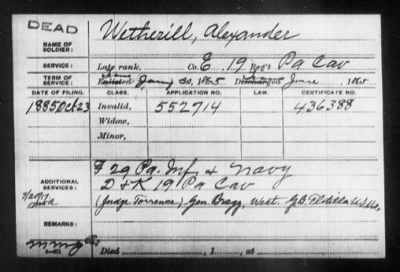 DEAD
NAME OF SOLDIER: Wetherill, Alexander
SERVICE: Late rank, Co. E, 19 Reg't Pa Cav
TERM OF SERVICE: Enlisted 30, 1865 Discharged June, 1865
DATE OF FILING. CLASS. APPLICATION NO. LAW. CERTIFICATE NO.
1885 Oct 23 Invalid, 552714 436388
Widow,
Minor,
ADDITIONAL SERVICES: F 29 Pa. Inf. & Navy
D & K 19 Pa Cav
(Judge Torrence) Gen. Bragg, West G.B. Flotilla U.S.
REMARKS:
Died , 1 , at